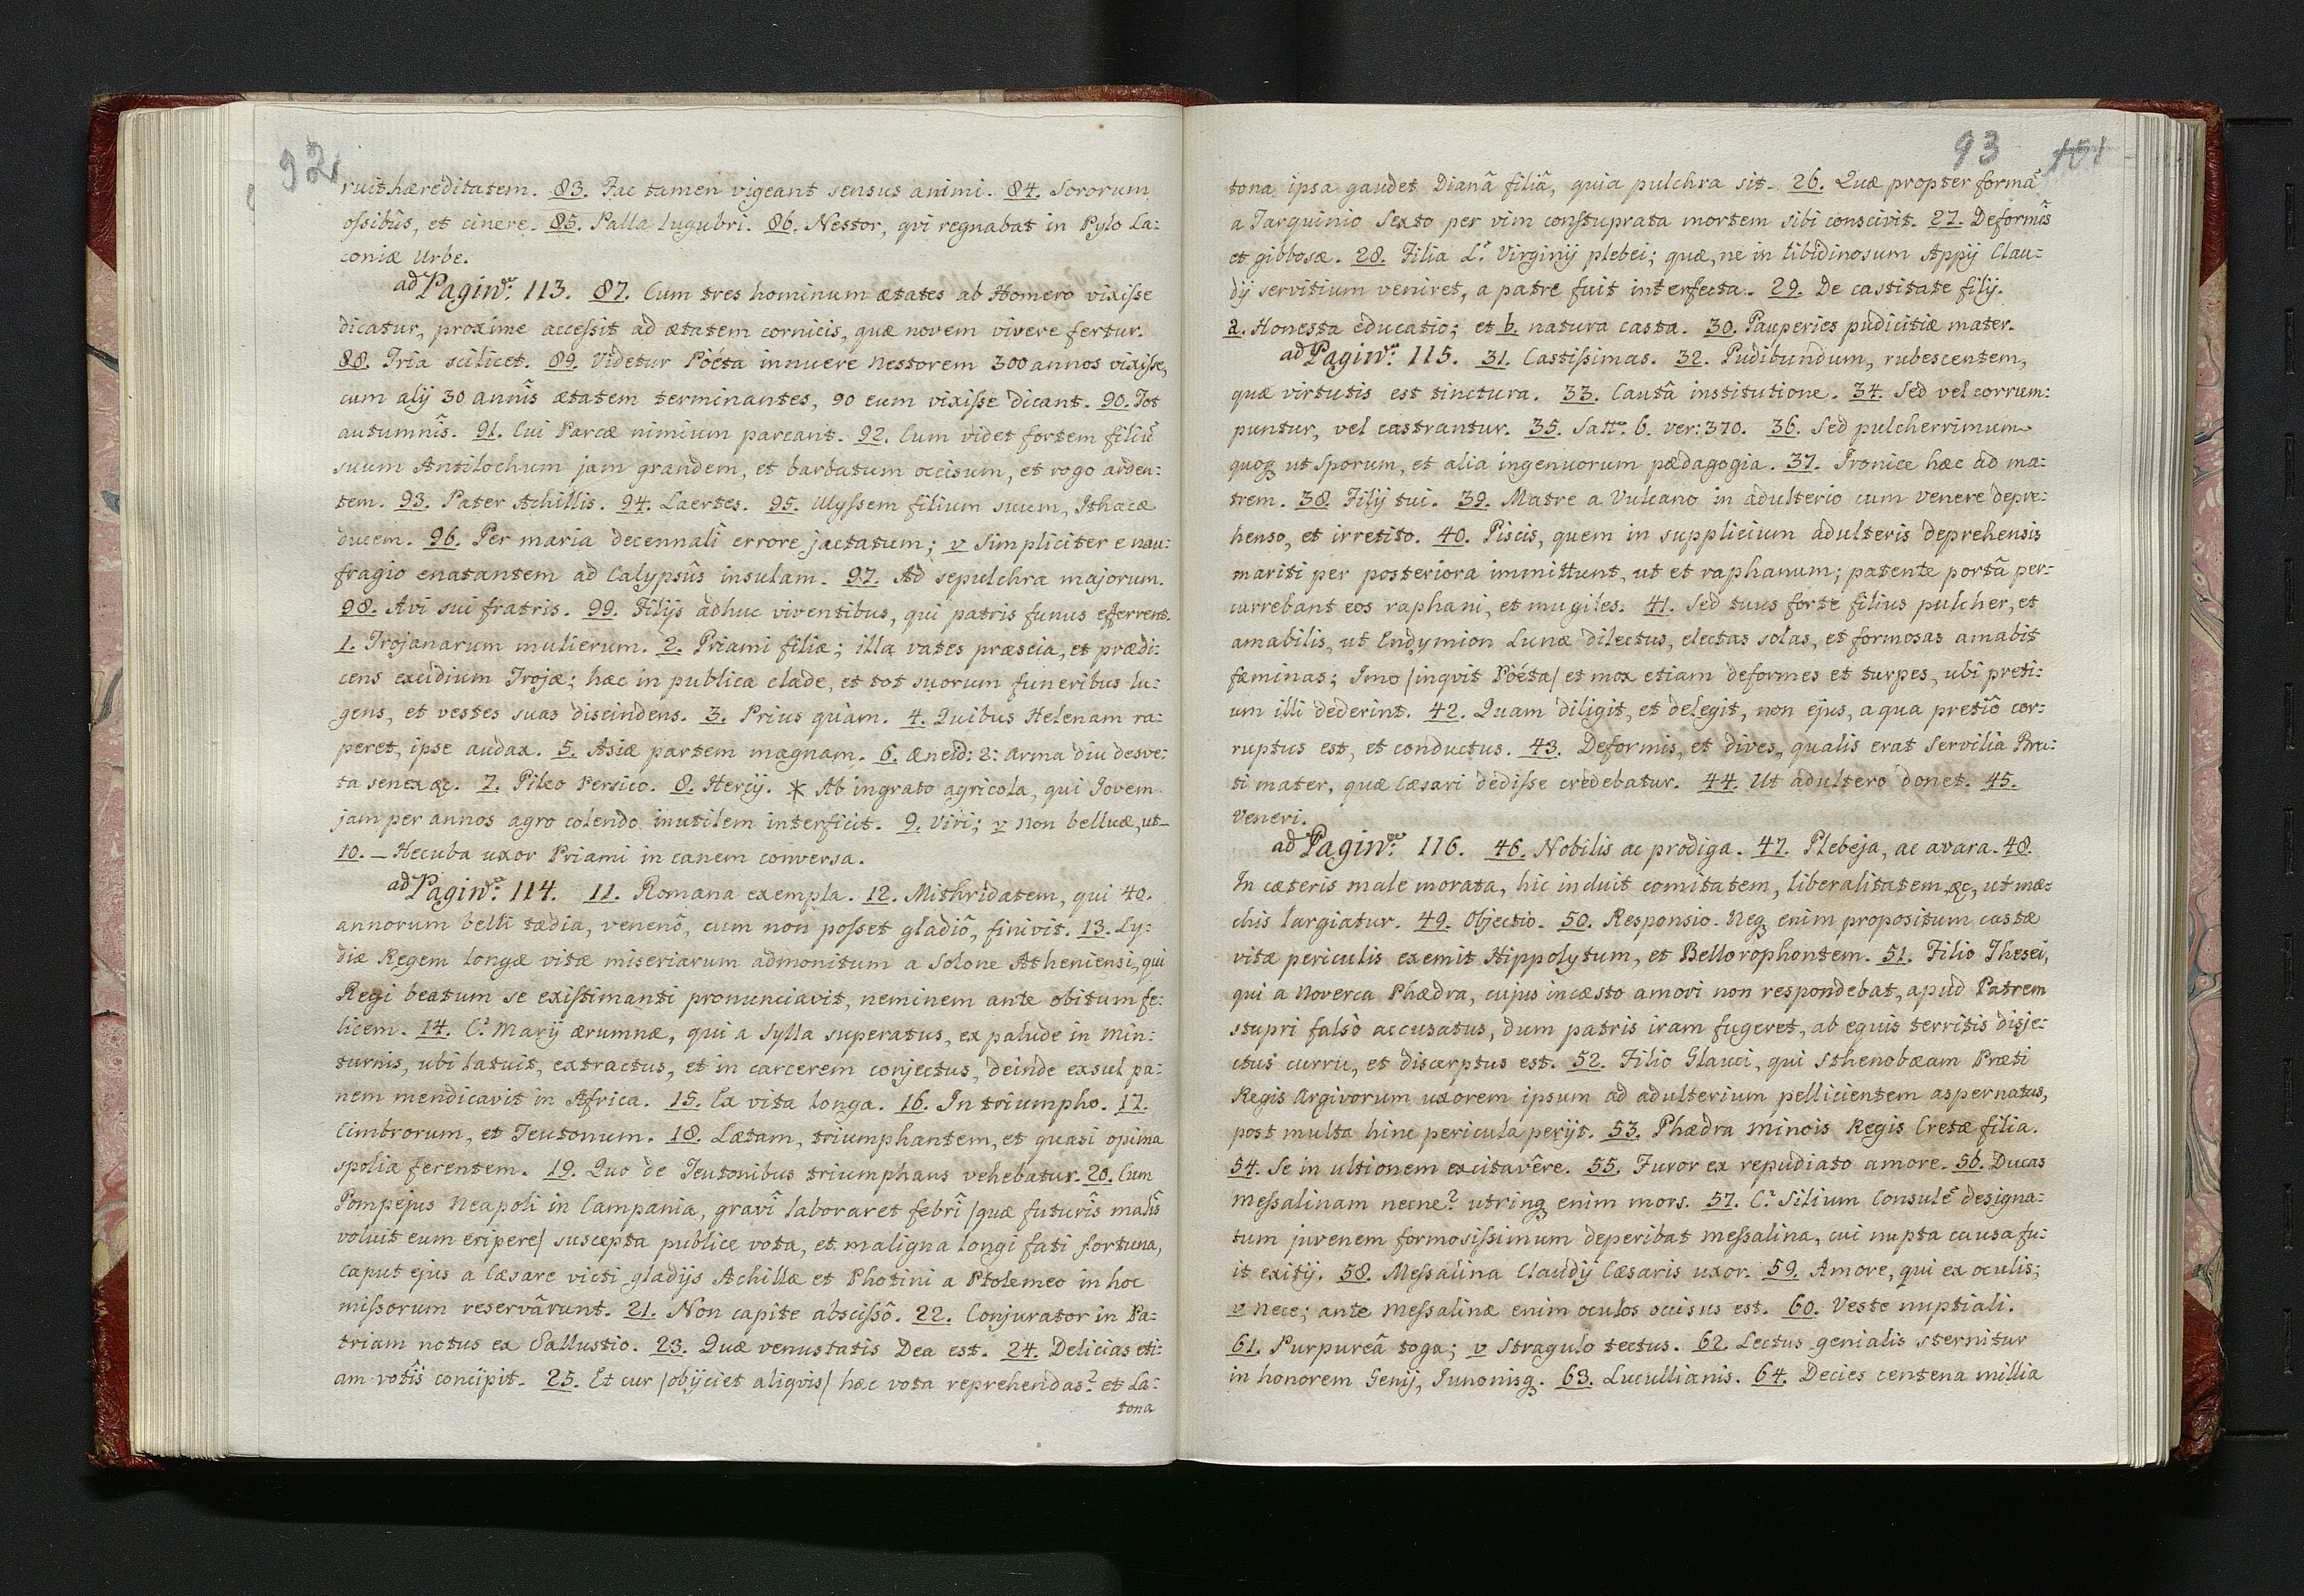 92
ruit hæreditatem. 83. Fac tamen vigeant sensus animi. 84. Sororum
oſsibûs, et cinere. 85. Palla lugubri. 86. Nestor, qvi regnabat in Pylo La:
coniæ Urbe.
ad Pagin. 113. 87. Cum tres hominum ætates ab Homero vixiſse
dicatur, proxime acceſsit ad ætatem cornicis, quæ novem vivere fertur.
88. Tria scilicet. 89. Videtur Pöéta innuere Nestorem 300 annos vixiſse,
cum alij 30 annîs ætatem terminantes, 90 eum vixiſse dicant. 90. Tot
autumnîs. 91. Cui Parcæ nimium parcant. 92. Cum videt fortem filiũ
suum Antilochum jam grandem, et barbatum occisum, et rogo arden:
tem. 93. Pater Achillis. 94. Laertes. 95. Ulyſsem filium suum, Ithacæ
ducem. 96. Per maria decennalî errore jactatum; v Simpliciter e nau:
fragio enatantem ad Calypsûs insulam. 97. Ad sepulchra majorum.
98. Avi sui fratris. 99. Filijs adhuc viventibus, qui patris funus efferrent.
1. Trojanarum mulierum. 2. Priami filiæ; illa vates præscia, et prædi:
cens excidium Trojæ; hæc in publica clade, et tot suorum funeribus lu:
gens, et vestes suas discindens. 3. Prius quàm. 4. Quibus Helenam ra:
peret, ipse audax. 5. Asiæ partem magnam. 6. Æneid: 2: arma diu desve:
ta senex &c. 7. Pileo Persico. 8. Hercÿ. * Ab ingrato agricola, qui Iovem
jam per annos agro colendo inutilem interficit. 9. Viri; v non belluæ, ut_
10. _ Hecuba uxor Priami in canem conversa.
ad Pagin. 114. 11. Romana exempla. 12. Mithridatem, qui 40.
annorum belli tædia, venenô, cum non poſset gladiô, finivit. 13. Ly:
diæ Regem longæ vitæ miseriarum admonitum a Solone Atheniensi, qui
Regi beatum se exiſtimanti pronunciavit, neminem ante obitum fe:
licem. 14. C. Marij ærumnæ, qui a Sylla superatus, ex palude in Min:
turnis, ubi latuit, extractus, et in carcerem conjectus, deinde exsul pa:
nem mendicavit in Africa. 15. Ex vita longa. 16. In triumpho. 17.
Cimbrorum, et Teutonum. 18. Lætam, triumphantem, et quasi opima
spolia ferentem. 19. Quo de Teutonibus triumphans vehebatur. 20. Cum
Pompejus Neapoli in Campania, gravî laboraret febrî /quæ futurîs malîs
voluit eum eripere/ suscepta publice vota, et maligna longi fati fortuna,
caput ejus a Cæsare victi gladijs Achillæ et Photini a Ptolemeo in hoc
miſsorum reservârunt. 21. Non capite absciſsô. 22. Conjurator in Pa:
triam notus ex Sallustio. 23. Quæ venustatis Dea est. 24. Delicias eti:
am votîs concipit. 25. Et cur /obijciet aliqvis/ hæc vota reprehendas? et La:
tona
93 101
tona ipsa gaudet Dianâ filiâ, quia pulchra sit. 26. Quæ propter formã
a Tarquinio Sexto per vim conſtuprata mortem sibi conscivit. 27. Deformis
et gibbosæ. 28. Filia L. Virginij plebei; quæ, ne in libidinosum Appij Clau:
dij servitium veniret, a patre fuit interfecta. 29. De castitate filij.
a. Honesta educatio; et b. natura casta. 30. Pauperies pudicitiæ mater.
ad Pagin. 115. 31. Castiſsimas. 32. Pudibundum, rubescentem,
quæ virtutis est tinctura. 33. Cautâ institutione. 34. Sed vel corrum:
puntur, vel castrantur. 35. Sat. 6. ver: 370. 36. Sed pulcherrimum
quoqȝ ut Sporum, et alia ingenuorum pædagogia. 37. Ironice hæc ad ma:
trem. 38. Filij tui. 39. Matre a Vulcano in adulterio cum Venere depre:
henso, et irretito. 40. Piscis, quem in supplicium adulteris deprehensis
mariti per posteriora immittunt, ut et raphanum; patente portâ per:
currebant eos raphani, et mugiles. 41. Sed tuus forte filius pulcher, et
amabilis, ut Endymion Lunæ dilectus, electas solas, et formosas amabit
fæminas; Imo /inqvit Pöéta/ et mox etiam deformes et turpes, ubi preti:
um illi dederint. 42. Quam diligit, et delegit, non ejus, a qua pretiô cor:
ruptus est, et conductus. 43. Deformis, et dives, qualis erat Servilia Bru:
ti mater, quæ Cæsari dediſse credebatur. 44. Ut adultero donet. 45.
Veneri.
ad Pagin. 116. 46. Nobilis ac prodiga. 47. Plebeja, ac avara. 48.
In cæteris male morata, hic induit comitatem, liberalitatem &c, ut mæ:
chis largiatur. 49. Objectio. 50. Responsio. Neqȝ enim propositum castæ
vitæ periculis exemit Hippolytum, et Bellorophontem. 51. Filio Thesei,
qui a Noverca Phædra, cujus incæsto amori non respondebat, apud Patrem
stupri falsò accusatus, dum patris iram fugeret, ab equis territis disje:
ctus curru, et discerptus est. 52. Filio Glauci, qui Sthenobæam Præti
Regis Argivorum uxorem ipsum ad adulterium pellicientem aspernatus,
post multa hinc pericula perijt. 53. Phædra Minois Regis Cretæ filia.
54. Se in ultionem excitavêre. 55. Furor ex repudiato amore. 56. Ducas
Meſsalinam necne? utrinqȝ enim mors. 57. C. Silium Consulẽ designa:
tum juvenem formosiſsimum deperibat Meſsalina, cui nupta causa fu:
it exitij. 58. Meſsalina Claudij Cæsaris uxor. 59. Amore, qui ex oculis;
v Nece; ante Meſsalinæ enim oculos occisus est. 60. Veste nuptiali.
61. Purpureâ toga; v Stragulo tectus. 62. Lectus genialis sternitur
in honorem Genij, Iunonisqȝ. 63. Lucullianis. 64. Decies centena millia